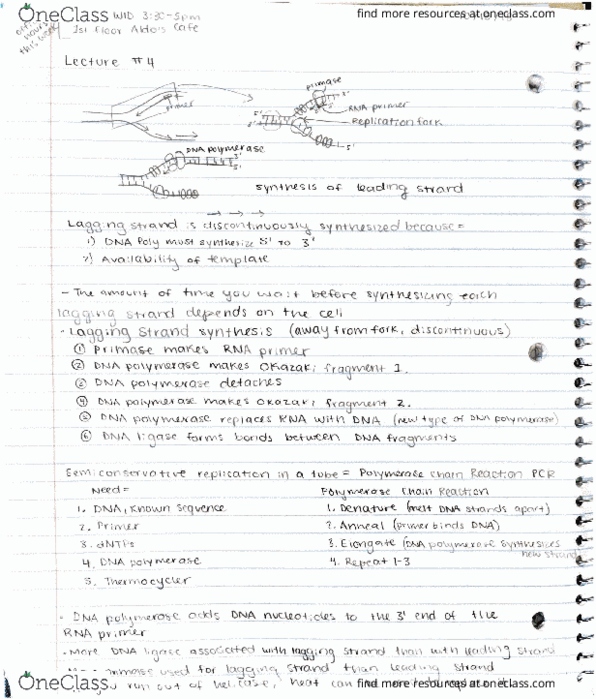 OneClass
find more resources at oneclass.com
off. hours this week
WID 3:30-5pm
1st Floor Aldo's Cafe
Lecture #4
primer
primase
RNA primer
Replication fork
DNA polymerase
3'
5'
synthesis of leading strand
Lagging strand is discontinuously synthesized because=
1) DNA Poly must synthesize 5' to 3'
2) Availability of template
- The amount of time you wait before synthesizing each
lagging strand depends on the cell
· Lagging strand synthesis (away from fork, discontinuous)
① Primase makes RNA primer
② DNA polymerase makes Okazaki fragment 1.
③ DNA polymerase detaches
④ DNA polymerase makes Okazaki fragment 2.
⑤ DNA polymerase replaces RNA with DNA (new type of DNA polymerase)
⑥ DNA ligase forms bonds between DNA fragments
Semiconservative replication in a tube = Polymerase Chain Reaction PCR
Need=
1. DNA, known sequence
2. Primer
3. dNTPs
4. DNA polymerase
5. Thermocycler
Polymerase Chain Reaction
1. Denature (melt DNA strands apart)
2. Anneal (primer binds DNA)
3. Elongate (DNA polymerase synthesizes
new strand
4. Repeat 1-3
· DNA polymerase adds DNA nucleotides to the 3' end of the
RNA primer
· More DNA ligase associated with lagging strand than with leading strand
used for lagging strand than leading strand
run out of helicase, heat can
OneClass
find more resources at oneclass.com